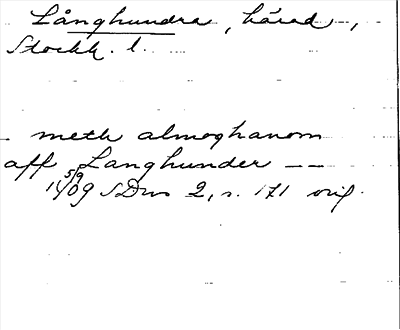 Långhundra, härad,
Stockh. l.
– meth almoghanom
aff Langhunder – –
15/9 1409 SDns 2, s. 171 orig.